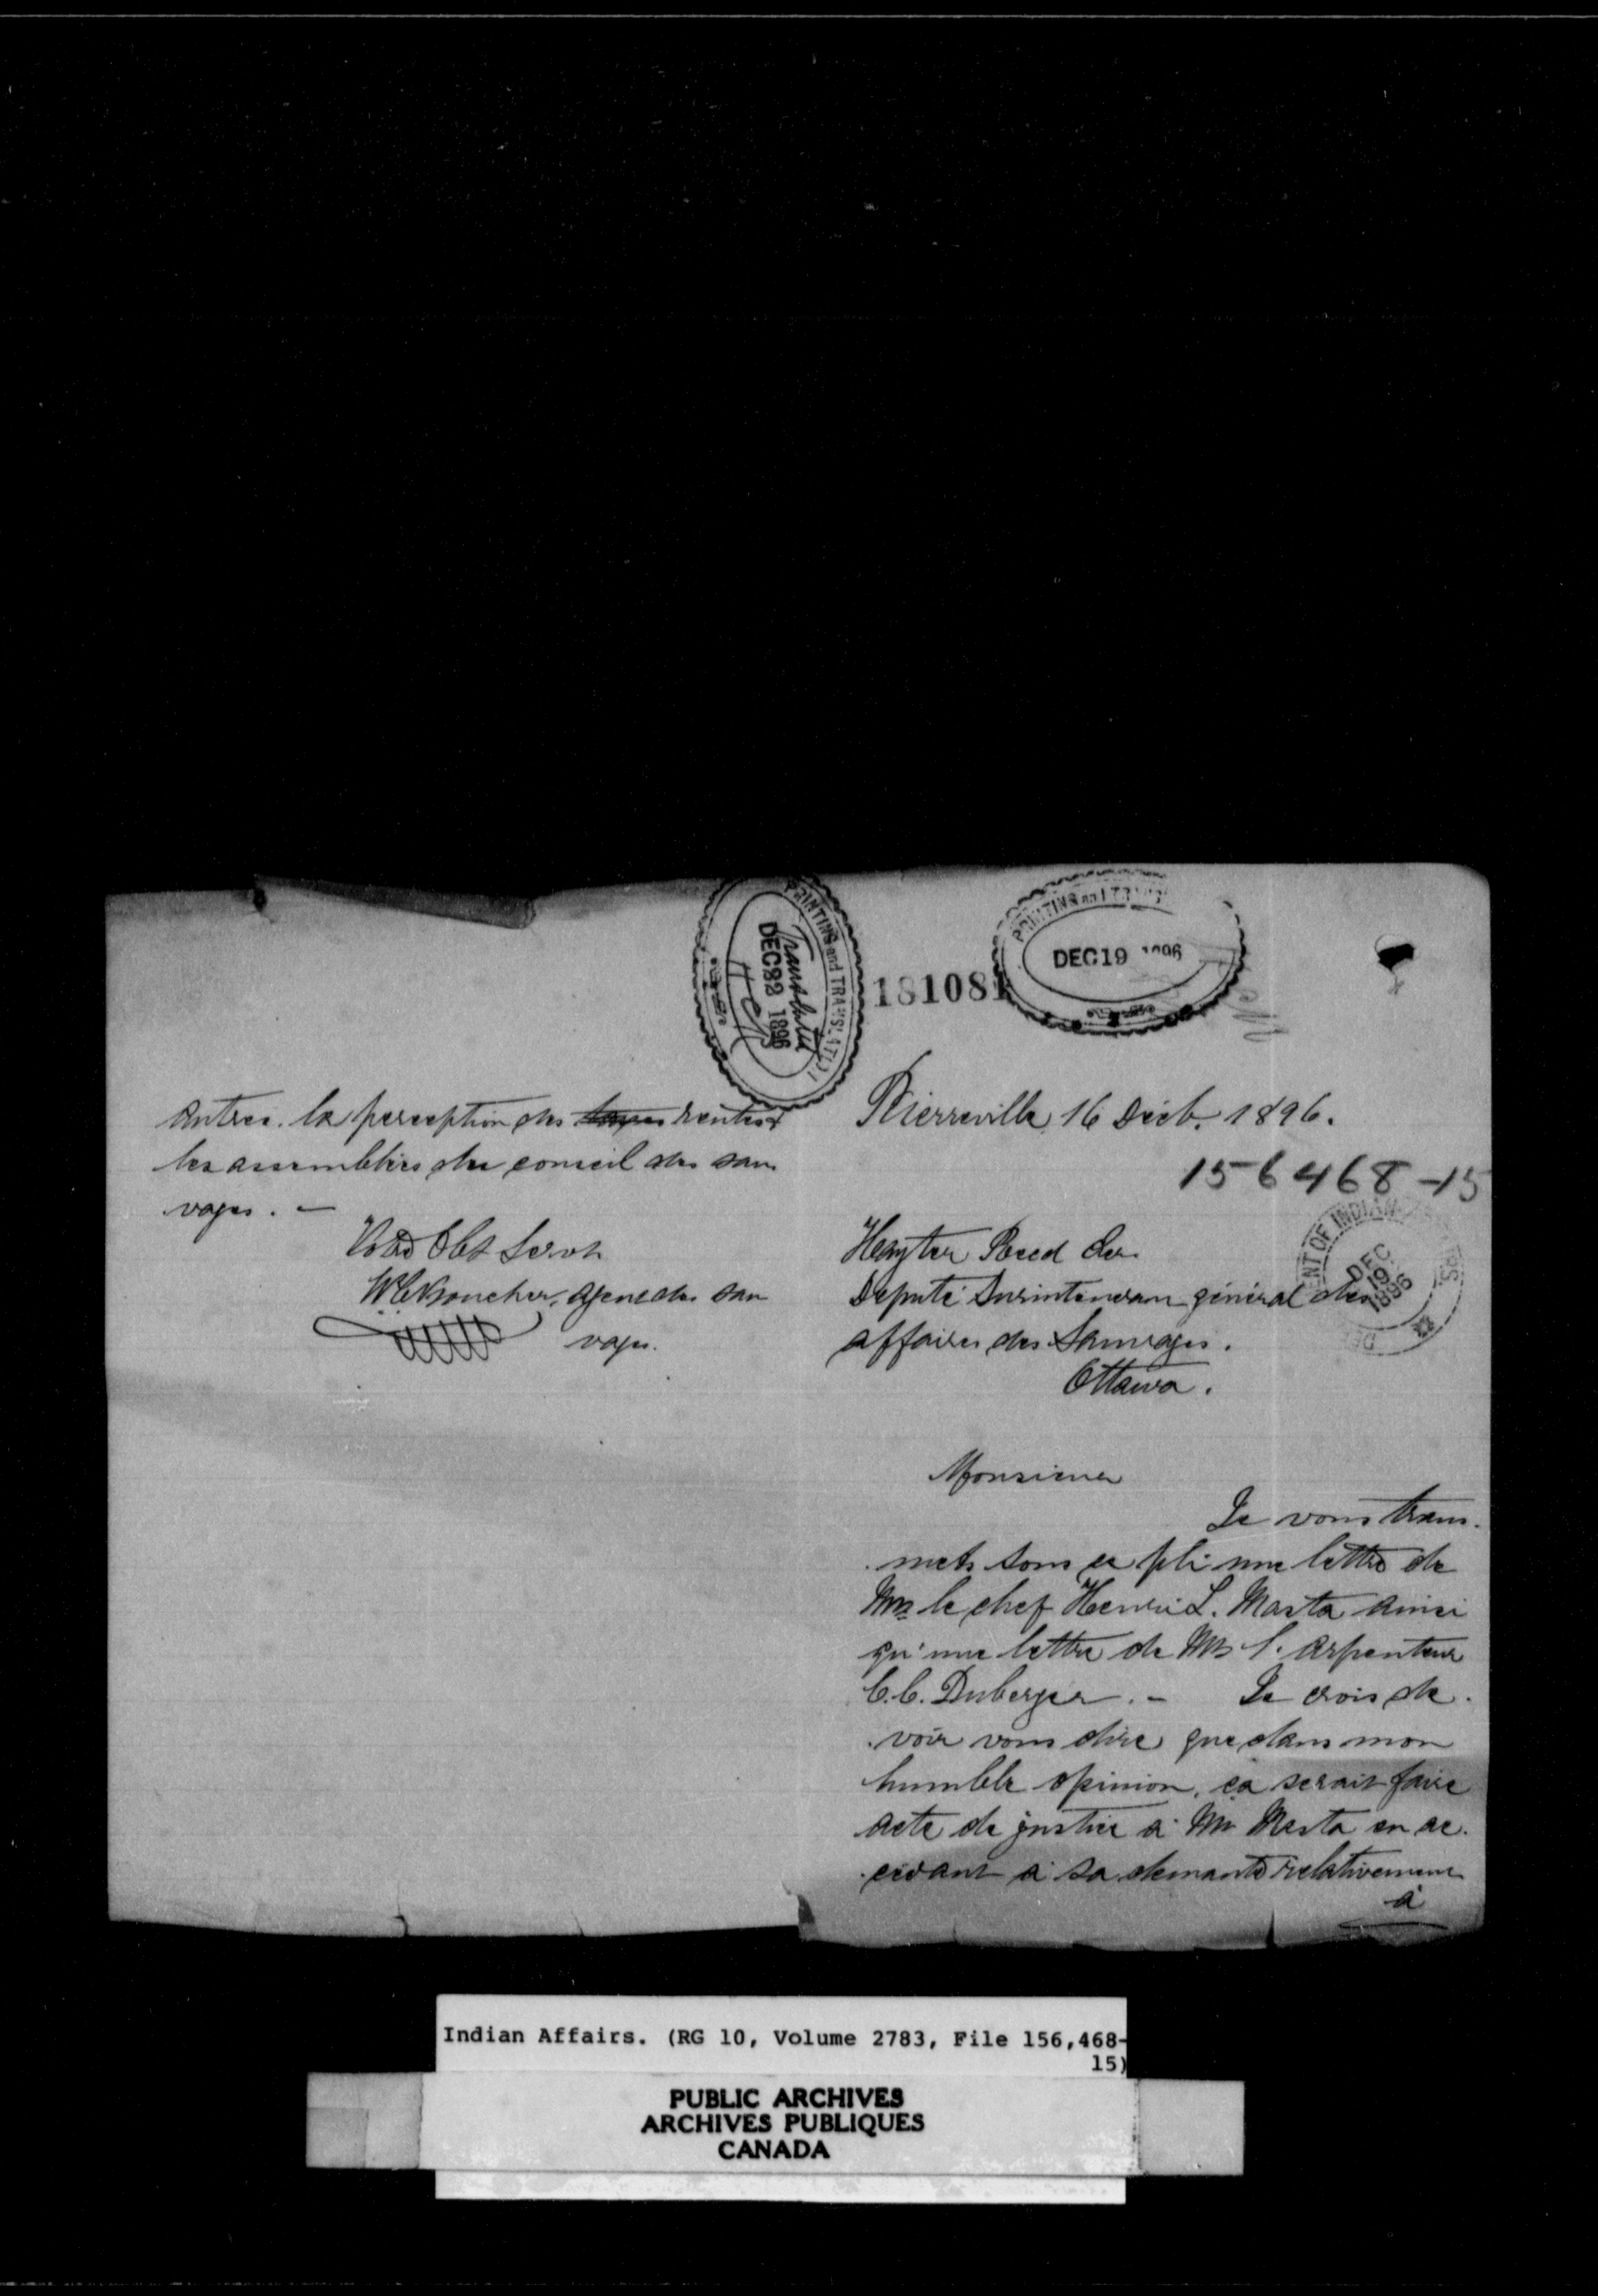 PRINTING and TRANSLATION
Translated
DEC 22 1896
181081
PRINTING and
DEC 19 1896
Pierreville, 16 Décb. 1896.
156468-15
DEC
19
1896
Hayter Reed Esr.
Deputé Surintendant général des
affaires des Sauvages.
Ottawa.
Monsieur
Je vous trans-
mets sous ce pli une lettre de
Mr le chef Henri L. Masta ainsi
qu'une lettre de Mr l'arpenteur
C.C. Duberger. - Je crois de-
voir vous dire que dans mon
humble opinion, ça serait faire
acte de justice à Mr Masta en ac-
cédant à sa demande relativement
à
autres. la perception des rentes &
les assemblées du conseil des sau
vages. -
Votre Obt Servt
agent des sau
vages.
Indian Affairs. (RG 10, Volume 2783, File 156,468-
15)
PUBLIC ARCHIVES
ARCHIVES PUBLIQUES
CANADA